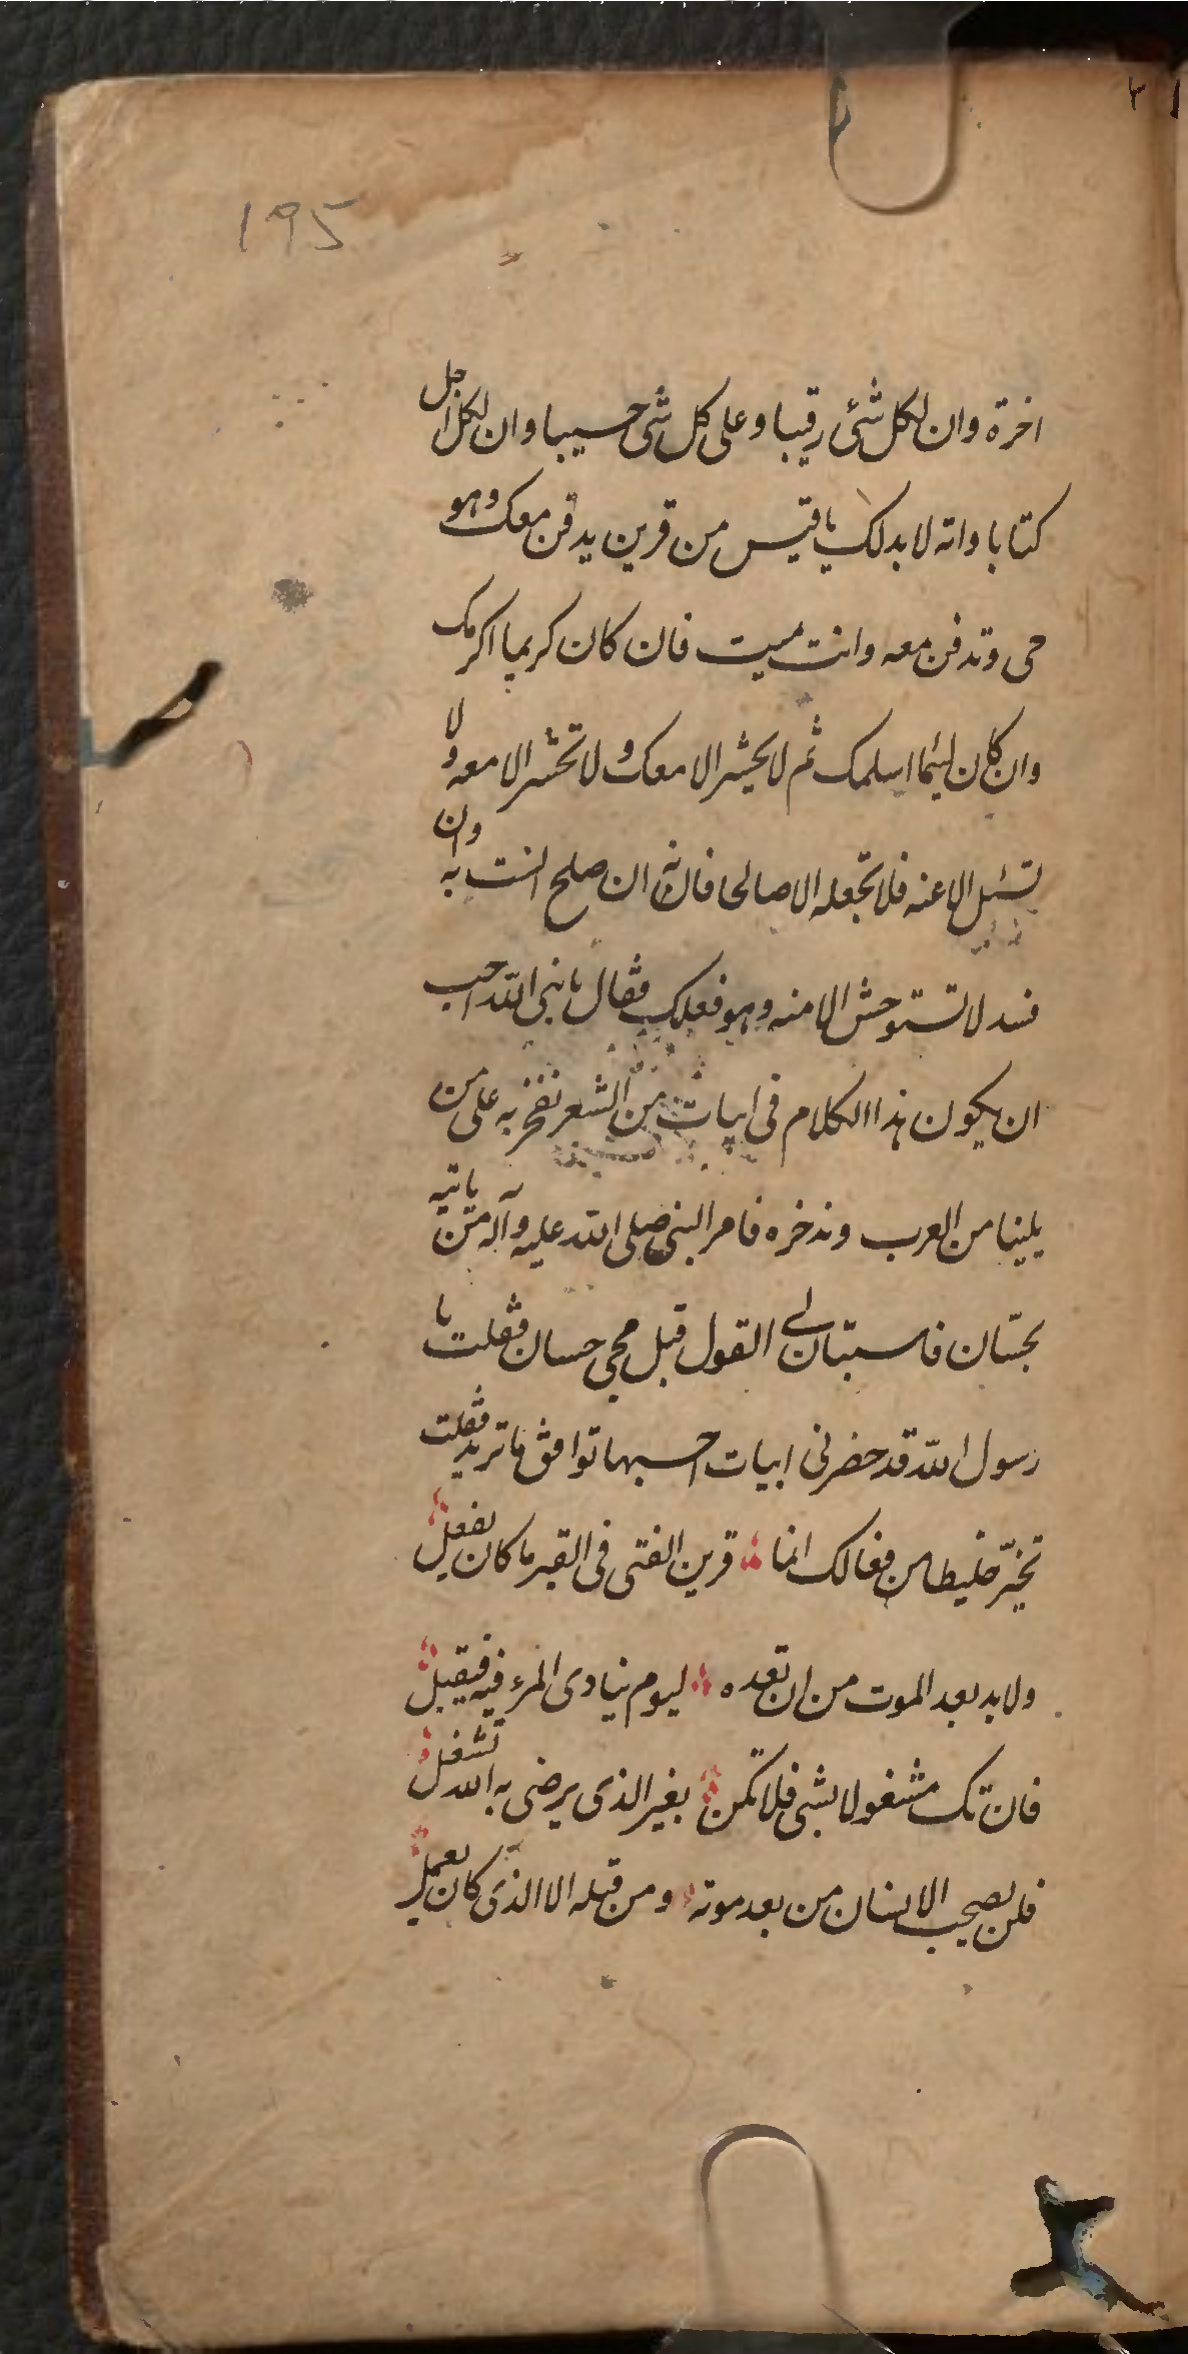 195
اخرة وان لكل شئ رقيبا وعلى كل شئ حسيبا وان لكل اجل
كتابا وانه لا بد لك يا قيس من قرين يدفن معك وهو
حى وتدفن معه وانت ميت فان كان كريما اكرمك
وان كان لئيما اسلمك ثم لا يحشر الا معك ولا تحشر الا معه ولا
تسئل الا عنه فلا تجعله الا صالحا فانه ان صلح انست به وان
فسد لا تستوحش الا منه وهو فعلك فقال يا نبى الله احب
ان يكون هذا الكلام فى ابيات من الشعر نفخر به على من
يلينا من العرب وندخره فامر النبى صلى الله عليه وآله من ياتيه
بحسّان فاستبان لى القول قبل مجى حسان فقلت يا
رسول الله قد حضرنى ابيات احسبها توافق ما تريد فقلت
تخيّر خليطا من فعالك انما قرين الفتى فى القبر ما كان يفعل
ولا بد بعد الموت من ان تعده ليوم ينادى المرء فيه فيقبل
فان تك مشغولا بشى فلا تكن بغير الذى يرضى به الله تشغل
فلن يصحب الانسان من بعد موته ومن قبله الا الذى كان يعمل